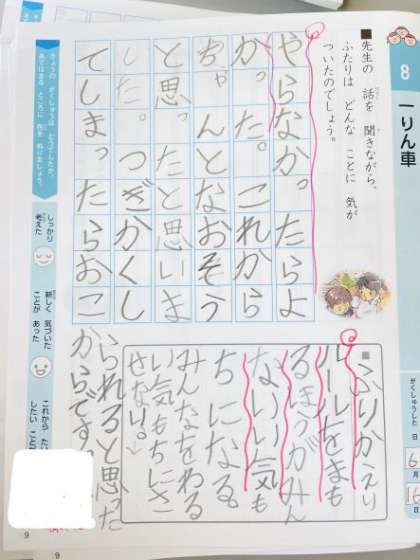 8
一りん車
がくしゅうした 日
6月
16日
■先生の 話を 聞きながら、
ふたりは どんな ことに 気が
ついたのでしょう。
やらなかったらよ
かった。これから
ちゃんとなおそう
と思ったと思いま
した。つぎかくし
てしまったらおこ
られると思った
からです。
■ふりかえり
ルールをまも
るほうがみん
ないい気も
ちになる。
みんなをわる
い気もちにさ
せない。
きょうの がくしゅうは どうでしたか。
あてはまる ところに 色を ぬりましょう。
しっかり
考えた
新しく 気づいた
ことが あった
これから
したい こと
9
9